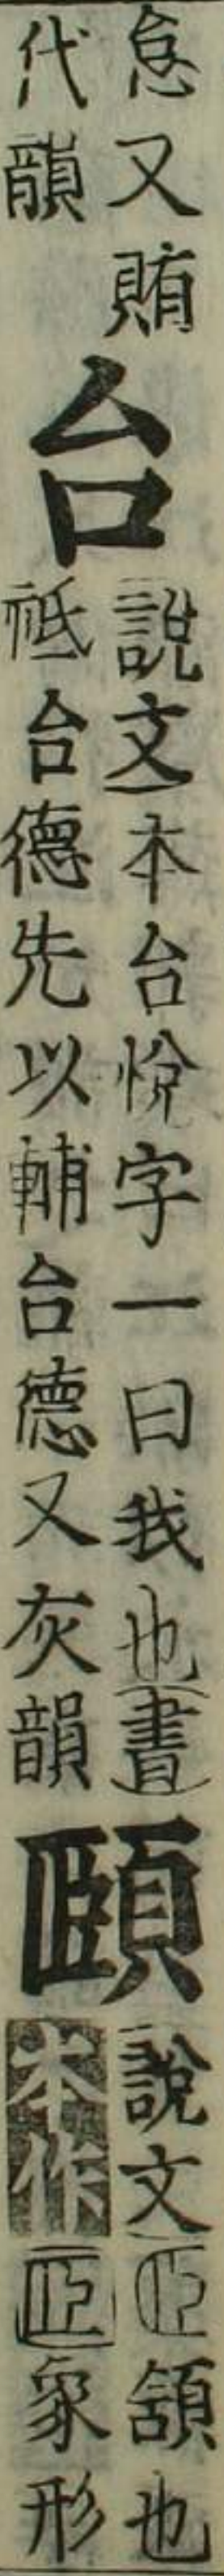 怠又賄
代韻
台
說文本台悅字一曰我也書
祗台德先以輔台德又灰韻
頤
說文𦣝頷也
本作𦣞象形